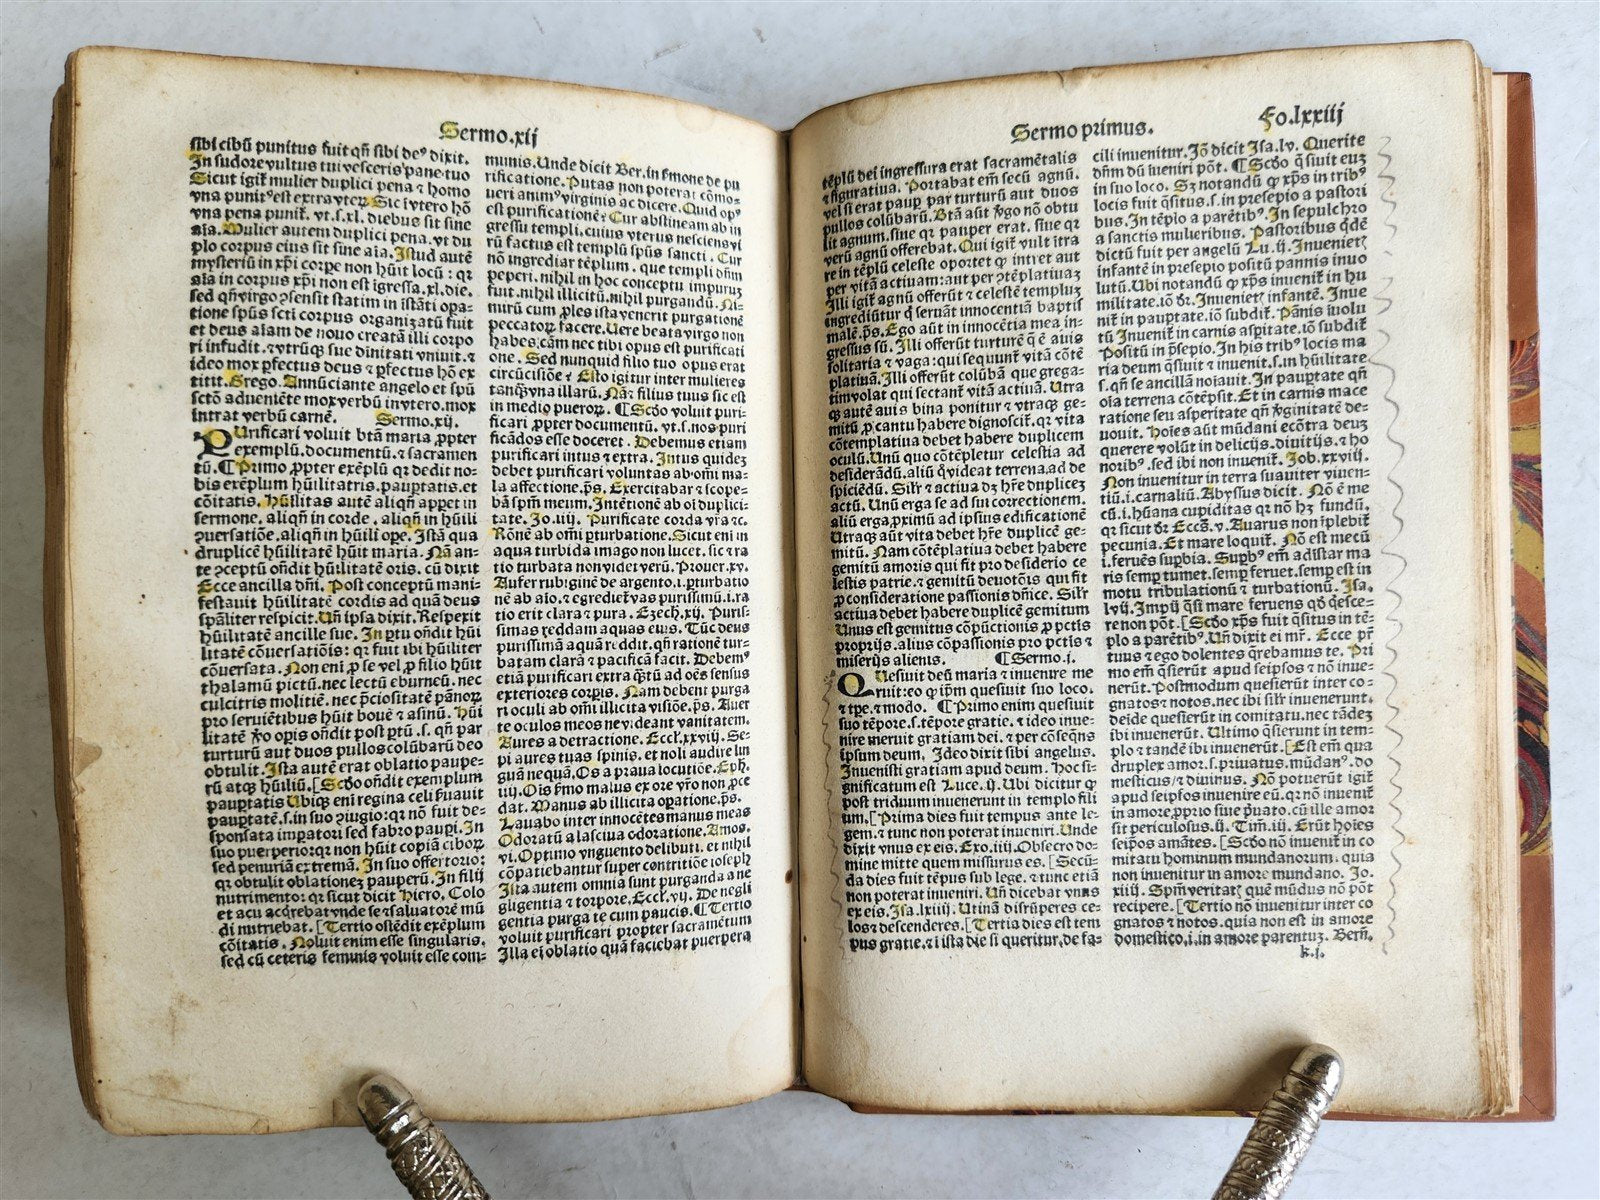 Sermo.xij
sibi cibū punitus fuit qñ sibi deꝰ dixit.
In sudore vultus tui vesceris pane tuo
Sicut igiť mulier duplici pena ⁊ homo
vna puniťꝰ est extra vterꝝ Sic ī vtero hō
vna pena puniť. vt.s.xl. diebus sit sine
aīa. Mulier autem duplici pena. vt du
plo corpus eius sit sine aīa. Istud autē
mysteriū in xp̄i corꝑe non hūit locū : qꝛ
aīa in corpus xp̄i non est igressa .xl. die.
sed qñ virgo ꝯsensit statim in istāti oꝑa-
tione spūs scti corpus organizatū fuit
et deus aīam de nouo creatā illi corpo
ri infudit. ⁊ vtrūqꝫ sue diuinitati vniuit. ⁊
ideo mox ꝑfectus deus ⁊ ꝑfectus hō ex
titit. Grego. Annūciante angelo et spū
sctō adueniēte mox verbū in vtero. mox
intrat verbū carnē. Sermo.xij.
PUrificari voluit btā maria ꝓpter
exemplū. documentū. ⁊ sacramen
tū. ¶ Primo ꝓpter exēplū qꝛ dedit no-
bis exēplum hūilitatis. pauꝑtatis. et
cōitatis. Hūilitas autē aliqñ apꝑet in
sermone. aliqñ in corde. aliqñ in hūili
ꝯuersatiōe. aliqñ in hūili oꝑe. Istā qua
druplicē hūilitatē hūit maria. Nā an-
te ꝯceptū oñdit hūilitatē oris. cū dixit
Ecce ancilla dñi. Post conceptū mani-
festauit hūilitatē cordis ad quā deus
spāliter respicit. Uñ ipsa dixit. Respexit
hūilitatē ancille sue. In ꝑtu oñdit hūi
litatē cōuersatiōis: qꝛ fuit ibi hūiliter
cōuersata. Non eni ꝓ se vel ꝓ filio hūit
thalamū pictū. nec lectū eburneū. nec
culcitris molitiē. nec p̄ciositatē pānoꝝ
pro seruiētibus hūit bouē ⁊ asinū. Hūi
litatē ꝟo oꝑis oñdit post ꝑtū .s. qñ par
turturū aut duos pullos colūbarū deo
obtulit. Ista autē erat oblatio pauꝑe-
rū atqꝫ hūiliū. [Scďo oñdit exemplum
pauꝑtatis Ubiqꝫ eni regina celi ẜuauit
pauꝑtatē. s. in suo ꝯiugio: qꝛ nō fuit de-
sponsata imꝑatori sed fabro pauꝑi. In
suo puerꝑerio: qꝛ non hūit copiā ciboꝝ
sed penuriā extremā. In suo offertorio:
qꝛ obtulit oblationeꝫ pauꝑerū. In filij
nutrimento: qꝛ sicut dicit Hiero. Colo
et acu acq̄rebat vnde se ⁊ saluatorē mū
di nutriebat. [Tertio ostēdit exēplum
cōitatis. Noluit enim esse singularis.
sed cū ceteris feminis voluit esse com-
munis. Unde dicit Ber. in ẜmone de pu
rificatione. Putas non poterat cōmo-
ueri animꝰ virginis ac dicere. Quid opꝰ
est purificatione? Cur abstineam ab in
gressu templi. cuius vterus nesciens vi
rū factus est templū spūs sancti. Cur
nō ingrediar tēplum. que templi dñm
peperi. nihil in hoc conceptu impuruꝫ
fuit. nihil illicitū. nihil purgandū. Ni-
mirū cum ꝓles ista venerit purgationē
peccatoꝝ facere. Uere beata virgo non
habes cām nec tibi opus est purificati
one. Sed nunquid filio tuo opus erat
circūcisiōe? Esto igitur inter mulieres
tanqꝫ vna illarū. Nā ⁊ filius tuus sic est
in medio pueroꝝ. ¶ Scďo voluit puri-
ficari ꝓpter documentū. vt.s. nos puri
ficādos esse doceret. Debemus etiam
purificari intus ⁊ extra. Intus quideꝫ
debet purificari voluntas ab omi ma-
la affectione. p̄s. Exercitabar ⁊ scope-
bā spm̄ meum. Intētionē ab oi duplici-
tate. Jo.iiij. Purificate corda vr̄a ⁊c.
Rōnē ab omi ꝑturbatione. Sicut eni in
aqua turbida imago non lucet. sic ⁊ ra
tio turbata non videt verū. Prouer.xv.
Aufer rubiginē de argento. i. ꝑturbatio
nē ab aīo. ⁊ egredieť vas purissimū. i. ra
tio erit clara ⁊ pura. Ezech.xij. Puris-
simas reddam aquas eius. Tūc deus
purissimā aquā reddit. qñ rationē tur-
batam clarā ⁊ pacificā facit. Debemꝰ
etiā purificari extra q̄tū ad oēs sensus
exteriores corꝑis. Nam debent purga
ri oculi ab omi illicita visiōe. p̄s. Auer
te oculos meos ne videant vanitatem.
Aures a detractione. Eccl.xxviij. Se-
pi aures tuas spinis. et noli audire lin
guā nequā. Os a praua locutiōe. Eph.
iiij. Ois ẜmo malus ex ore vr̄o non ꝓce
dat. Manus ab illicita oꝑatione. p̄s.
Lauabo inter innocētes manus meas
Odoratū a lasciua odoratione. Amos.
vi. Optimo vnguento delibuti. et nihil
cōpatiebantur super contritiōe ioseph
Ista autem omnia sunt purganda a ne
gligentia ⁊ torpore. Eccl.vij. De negli
gentia purga te cum paucis. ¶ Tertio
voluit purificari propter sacramētum
Illa ei oblatio quā faciebat puerpera
Sermo primus. Fo.lxxiij
tēplū dei ingressura erat sacramētalis
⁊ figuratiua. Portabat em̄ secū agnū.
vel si erat pauꝑ par turturū aut duos
pullos colūbarū. Btā aūt ꝟgo nō obtu
lit agnum. siue qꝛ pauper erat. siue qꝛ
verū agnū offerebat. Qui igiť vult ītra
re in tēplū celeste oportet ꝙ intret aut
per vitā actiuam: aut per ꝯtēplatiuaꝫ
Illi igiť agnū offerūt ⁊ celestē templuꝫ
ingrediūtur q̄ seruāt innocentiā baptis
malē. p̄s. Ego aūt in innocētia mea in-
gressus sū. Illi offerūt turturē q̄ ē auis
solitaria ⁊ vaga: qui sequunť vitā cōtē
platiuā. Illi offerūt colūbā que grega-
tim volat qui sectanť vitā actiuā. Utra
qꝫ autē auis bina ponitur ⁊ vtraqꝫ ge-
mitū ꝓ cantu habere dignosciť. qꝛ vita
cōtemplatiua debet habere duplicem
oculū. Unū quo cōtēpletur celestia ad
desiderādū. aliū q̄ videat terrena. ad de
spiciēdū. Silr̄ ⁊ actiua dꝫ hr̄e duplicē
actū. Unū erga se ad sui correctionem.
aliū erga ꝓximū ad ipsius edificationē
Utraqꝫ aūt vita debet hr̄e duplicē ge-
mitū. Nam cōtēplatiua debet habere
gemitū amoris qui fit pro desiderio ce
lestis patrie. ⁊ gemitū deuotōis qui fit
ꝓ consideratione passionis dñice. Silr̄
actiua debet habere duplicē gemitum
Unus est gemitus cōpūctionis ꝓ pctis
proprijs. alius cōpassionis pro pctis ⁊
miserijs alienis. ¶ Sermo.j.
QUesiuit deū maria ⁊ inuenire me
ruit: eo ꝙ ip̄m quesiuit suo loco.
⁊ tꝑe. ⁊ modo. ¶ Primo enim quesiuit
suo tēpore. s. tēpore gratie. ⁊ ideo inue-
nire meruit gratiam dei. ⁊ per cōseq̄ns
ipsum deum. Ideo dixit sibi angelus.
Inuenisti gratiam apud deum. Hoc si-
gnificatum est Luce.ij. Ubi dicitur ꝙ
post triduum inuenerunt in templo fili
um. [Prima dies fuit tempus ante le-
gem. ⁊ tunc non poterat inueniri. Unde
dixit vnus ex eis. Exo.iiij. Obsecro do-
mine mitte quem missurus es. [Secū-
da dies fuit tēpus sub lege. ⁊ tunc etiā
non poterat inueniri. Uñ dicebat vnus
ex eis. Isa.lxiiij. Utinā disrūperes ce-
los ⁊ descenderes. [Tertia dies est tem
pus gratie. ⁊ ista die si queritur. de fa-
cili inuenitur. Jō dicit Isa.lv. Querite
dñm dū īueniri pōt. ¶ Scďo q̄siuit euꝫ
in suo loco. Sꝫ notandū ꝙ xp̄s in tribꝰ
locis fuit q̄situs. s. in presepio a pastori
bus. In tēplo a parētibꝰ. In sepulchro
a sanctis mulieribus. Pastoribus q̄dē
dictū fuit per angelū Lu.ij. Inuenietꝫ
infantē in presepio positū pannis inuo
lutū. Ubi notandū ꝙ xp̄s inueniť in hu
militate. iō dr̄. Inuenietꝫ infantē. Inue
niť in pauꝑtate. iō subdiť. Pānis īuolu
tū Inueniť in carnis asꝑitate. iō subdiť
Positū in p̄sepio. In his tribꝰ locis ma
ria deum q̄siuit ⁊ inuenit. s. in hūilitate
s. qñ se ancillā noīauit. In pauꝑtate qñ
oīa terrena cōtēpsit. Et in carnis mace
ratione seu asperitate qñ ꝟginitatē de-
uouit. Hoīes aūt mūdani ecōtra deuꝫ
querere volūt in delicijs. diuitijs. ⁊ ho
noribꝰ. sed ibi non inueniť. Job.xxviij.
Non inuenitur in terra suauiter viuen-
tiū. i. carnaliū. Abyssus dicit. Nō ē me
cū. i. hūana cupiditas qꝛ nō hꝫ fundū.
qꝛ sicut dr̄ Eccs.v. Auarus non īplebiť
pecunia. Et mare loquiť. Nō est mecū
i. feruēs suꝑbia. Suꝑbꝰ em̄ ad istar ma
ris semꝑ tumet. semꝑ feruet. semꝑ est in
motu tribulationū ⁊ turbationū. Isa.
lvij. Impij q̄si mare feruens qď q̄esce-
re non pōt. [Scďo xp̄s fuit q̄situs in tē-
plo a parētibꝰ. Uñ dixit ei mr̄. Ecce pr̄
tuus ⁊ ego dolentes q̄rebamus te. Pri
mo em̄ q̄sierūt apud seipsos ⁊ nō inue-
nerūt. Postmodum quesierūt inter co-
gnatos ⁊ notos. nec ibi silr̄ inuenerunt.
deide quesierūt in comitatu. nec tādeꝫ
ibi inuenerūt. Ultimo q̄sierunt in tem-
plo ⁊ tandē ibi inuenerūt. [Est em̄ qua
druplex amor. s. priuatus. mūdanꝰ. do
mesticus / ⁊ diuinus. Nō potuerūt igiť
apud seipsos inuenire eū. qꝛ nō inueniť
in amore ꝓprio siue p̄uato. cū ille amor
sit periculosus. ij. Tim.iij. Erūt hoīes
seip̄os amātes. [Scďo nō inueniť in co
mitatu hominum mundanorum. quia
non inuenitur in amore mundano. Jo.
xiiij. Spm̄ veritatꝫ quē mūdus nō pōt
recipere. [Tertio nō inuenitur inter co
gnatos ⁊ notos. quia non est in amore
domestico. i. in amore parentuꝫ. Bern̄.
k.j.